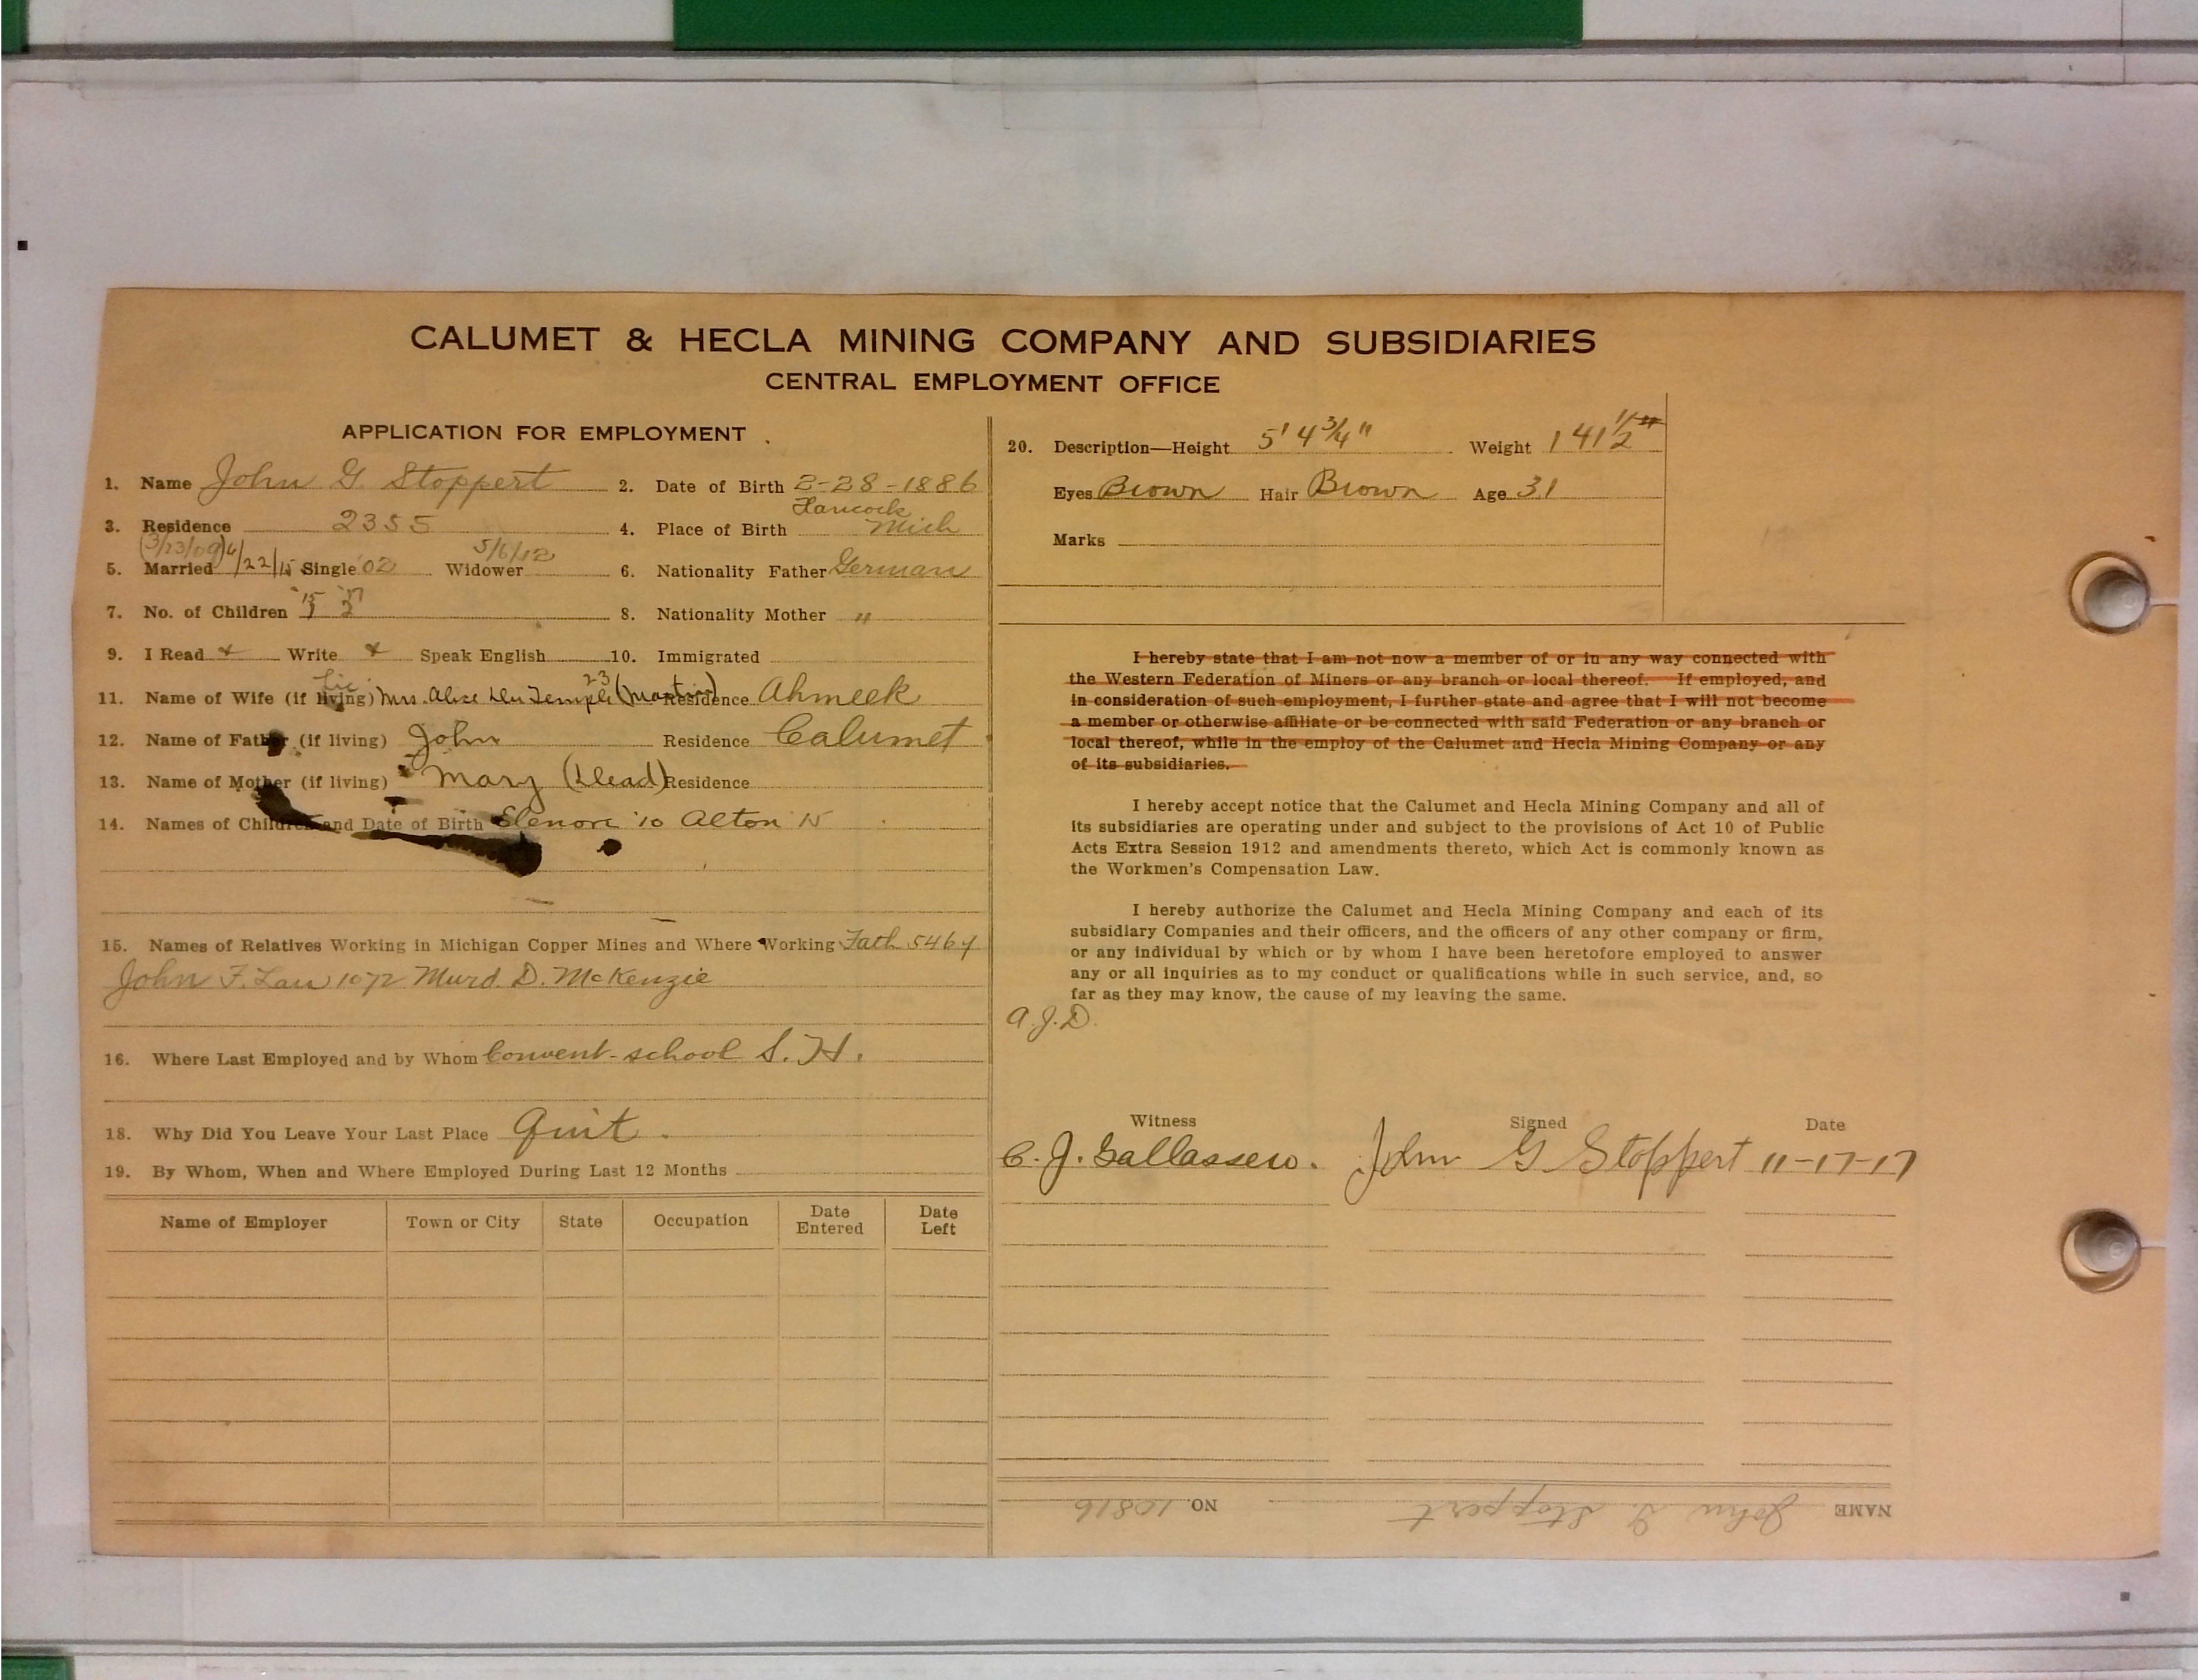 CALUMET & HECLA MINING COMPANY AND SUBSIDIARIES
CENTRAL EMPLOYMENT OFFICE
APPLICATION FOR EMPLOYMENT
1. Name John G. Stoppert 2. Date of Birth 2-28-1886
Hancock
3. Residence 2355 4. Place of Birth Mich
(3/23/09) 5/6/12
5. Married 4/22/15 Single '02 Widower 6. Nationality Father German
'15 '17
7. No. of Children 1 2 8. Nationality Mother "
9. I Read x Write x Speak English 10. Immigrated
11. Name of Wife (if living) Mrs. Alice 23 Residence Ahmeek
12. Name of Father (if living) John Residence Calumet
13. Name of Mother (if living) Mary (Dead) Residence
14. Names of Children and Date of Birth Elenore '10 Alton 15
15. Names of Relatives Working in Michigan Copper Mines and Where Working Fath 5464
John F. Lau 1072 Murd. D. McKenzie
16. Where Last Employed and by Whom Convent-school S. H.
18. Why Did You Leave Your Last Place Quit.
19. By Whom, When and Where Employed During Last 12 Months
Name of Employer Town or City State Occupation Date Entered Date Left
20. Description—Height 5' 4 3/4" Weight 141 1/2
Eyes Brown Hair Brown Age 31
Marks
I hereby state that I am not now a member of or in any way connected with
the Western Federation of Miners or any branch or local thereof. If employed, and
in consideration of such employment, I further state and agree that I will not become
a member or otherwise affiliate or be connected with said Federation or any branch or
local thereof, while in the employ of the Calumet and Hecla Mining Company or any
of its subsidiaries.
I hereby accept notice that the Calumet and Hecla Mining Company and all of
its subsidiaries are operating under and subject to the provisions of Act 10 of Public
Acts Extra Session 1912 and amendments thereto, which Act is commonly known as
the Workmen's Compensation Law.
I hereby authorize the Calumet and Hecla Mining Company and each of its
subsidiary Companies and their officers, and the officers of any other company or firm,
or any individual by which or by whom I have been heretofore employed to answer
any or all inquiries as to my conduct or qualifications while in such service, and, so
far as they may know, the cause of my leaving the same.
A.J.D.
Witness Signed Date
C. J. Gallassero. John G Stoppert 11-17-17
NAME John G. Stoppert NO. 10816